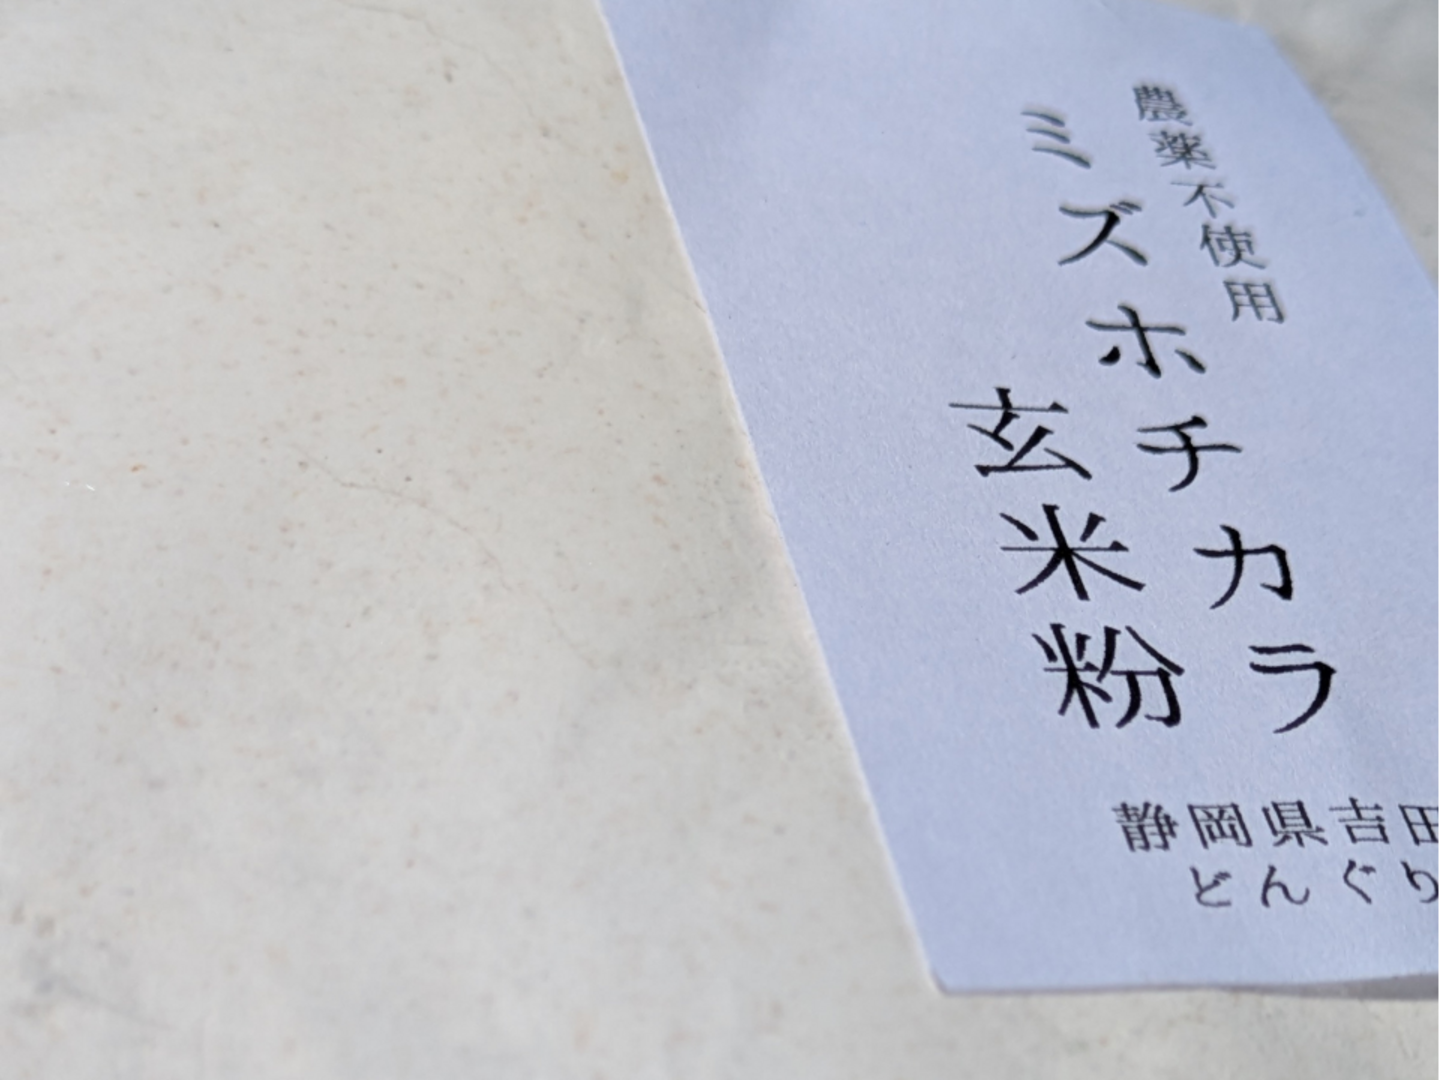 農薬不使用
ミズホチカラ
玄米粉
静岡県吉田
どんぐり